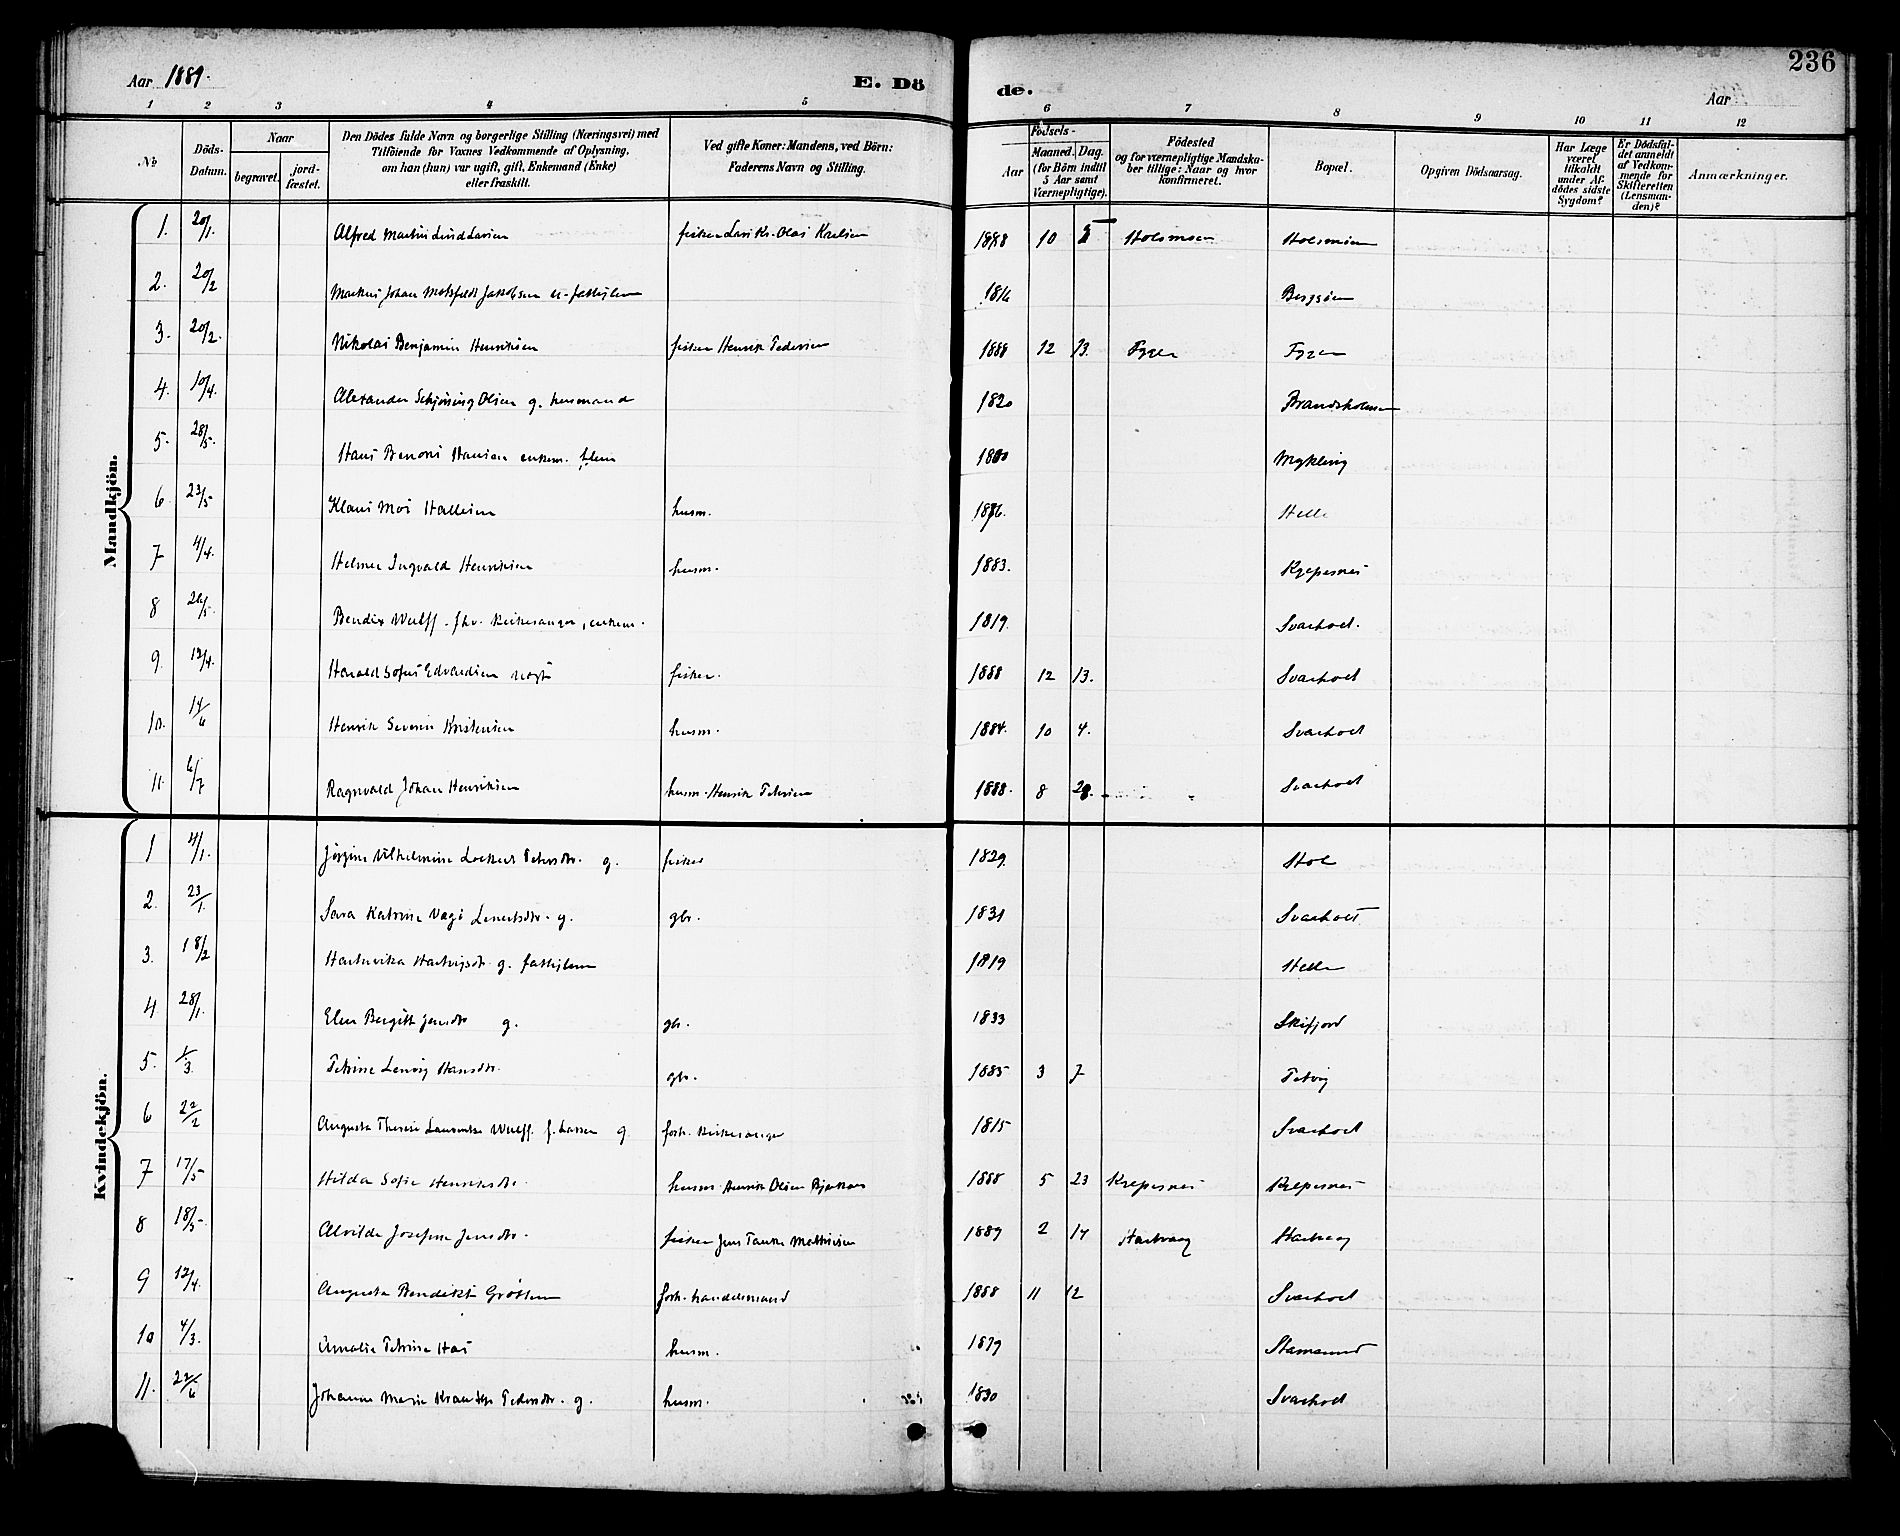 236
Aar 1889.
E. Döde.
Aar
1 2 3 4 5 6 7 8 9 10 11 12
No
Döds-Datum.
Naar
begravet.
jordfæstet.
Den Dödes fulde Navn og borgerlige Stilling (Næringsvei) med
Tilföiende for Voxnes Vedkommende af Oplysning,
om han (hun) var ugift, gift, Enkemand (Enke)
eller fraskilt.
Ved gifte Koner: Mandens, ved Börn:
Faderens Navn og Stilling.
Födsels-
Aar
Maaned. Dag.
(for Börn indtil
5 Aar samt
Værnepligtige).
Födested
og for værnepligtige Mandska-
ber tillige: Naar og hvor
Konfirmeret.
Bopæl.
Opgiven Dödsaarsag.
Har Læge
været
tilkaldt
under Af-
dödes sidste
Sygdom?
Er Dödsfal-
det anmeldt
af Vedkom-
mende for
Skifteretten
(Lensman-
den)?
Anmærkninger.
Mandkjön.
1. 20/1. Alfred Martin Lind Larsen fisker Lars Kr. Olai Karlsen 1888 10 Holsmoen Holsmoen
2. 20/2 Markus Johan Jakobsen 1816 Bergsöen
3. 20/2. Nikolai Benjamin Henriksen fisker Henrik Pedersen 1888 12 13. Fygen Fygen
4. 10/4. Alexander Schjöning Olsen g. husmand 1820 Brandsholmen
5. 28/5. Hans Benoni Hansen enkem. Mykling
6 23/5 Klaus Moi Hallesen husm. Helle
7 4/4. Helmer Ingvald Henriksen husm. 1883. Kræpesnes
8 Bendix Wulff. fhv. Kirkesanger, enkem. 1819. Svarholt.
9. 12/4. Harald Sofus Edvardsen fisker. 1888 12 13. Svarholt
10. 14/6 Henrik Severin Kristensen husm. 1884. 10 4. Svarholt
11. 6/7 Ragnvald Johan Henriksen husm. Henrik Petersen 1888. 8 28. Svarholt
Kvindekjön.
1 4/1. Jörgine Vilhelmine Lockert Petersdtr. g. fisker 1829. Hol
2. 23/1. Sara Katrine Vagö g. gbr. 1831 Svarholt
3. 18/2 Hartvika Hartvigsdtr. g. fattiglem 1819 Helle
4 28/1. Elen Bergitt Jensdtr g. gbr. 1833 Skifjord
5. 1/3. Petrine Lenvig Hansdtr. gbr. 1885 3 7 Petvig
6 22/2 Augusta Therese Laurentze Wulff f. Lassen g. forh. Kirkesanger 1815 Svarholt
7 17/5 Hilda Sofie Henriksdtr. husm. Henrik Olsen 1888 5 23 Kræpesnes Kræpesnes
8 18/5. Alvilda Josefine Jensdtr. fisker Jens Tanke Mathisen 1889 2 14 Hartvaag Hartvaag
9 12/4. Augusta Bendikte Gröttum forh. handelsmand 1888 11 12 Svarholt
10 4/3. Amalie Petrine Hai husm. 1879 Stamsund
11. 22/6 Johanne Marie Pedersdtr. g. husm. 1830 Svarholt